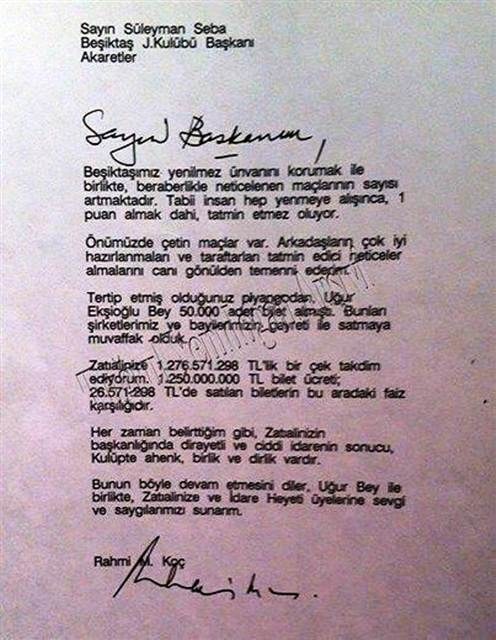 Sayın Süleyman Seba
Beşiktaş J.Kulübü Başkanı
Akaretler
Sayın Başkanım,
Beşiktaşımız yenilmez ünvanını korumak ile
birlikte, beraberlikle neticelenen maçlarının sayısı
artmaktadır. Tabii insan hep yenmeye alışınca, 1
puan almak dahi, tatmin etmez oluyor.
Önümüzde çetin maçlar var. Arkadaşların çok iyi
hazırlanmaları ve taraftarları tatmin edici neticeler
almalarını canı gönülden temenni ederim.
Tertip etmiş olduğunuz piyangodan, Uğur
Ekşioğlu Bey 50.000 adet bilet almıştı. Bunları
şirketlerimiz ve bayilerimizin gayreti ile satmaya
muvaffak olduk.
Zatıalinize 1.276.571.298 TL'lik bir çek takdim
ediyorum. 1.250.000.000 TL bilet ücreti;
26.571.298 TL'de satılan biletlerin bu aradaki faiz
karşılığıdır.
Her zaman belirttiğim gibi, Zatıalinizin
başkanlığında dirayetli ve ciddi idarenin sonucu,
Kulüpte ahenk, birlik ve dirlik vardır.
Bunun böyle devam etmesini diler, Uğur Bey ile
birlikte, Zatıalinize ve İdare Heyeti üyelerine sevgi
ve saygılarımızı sunarım.
Rahmi M. Koç